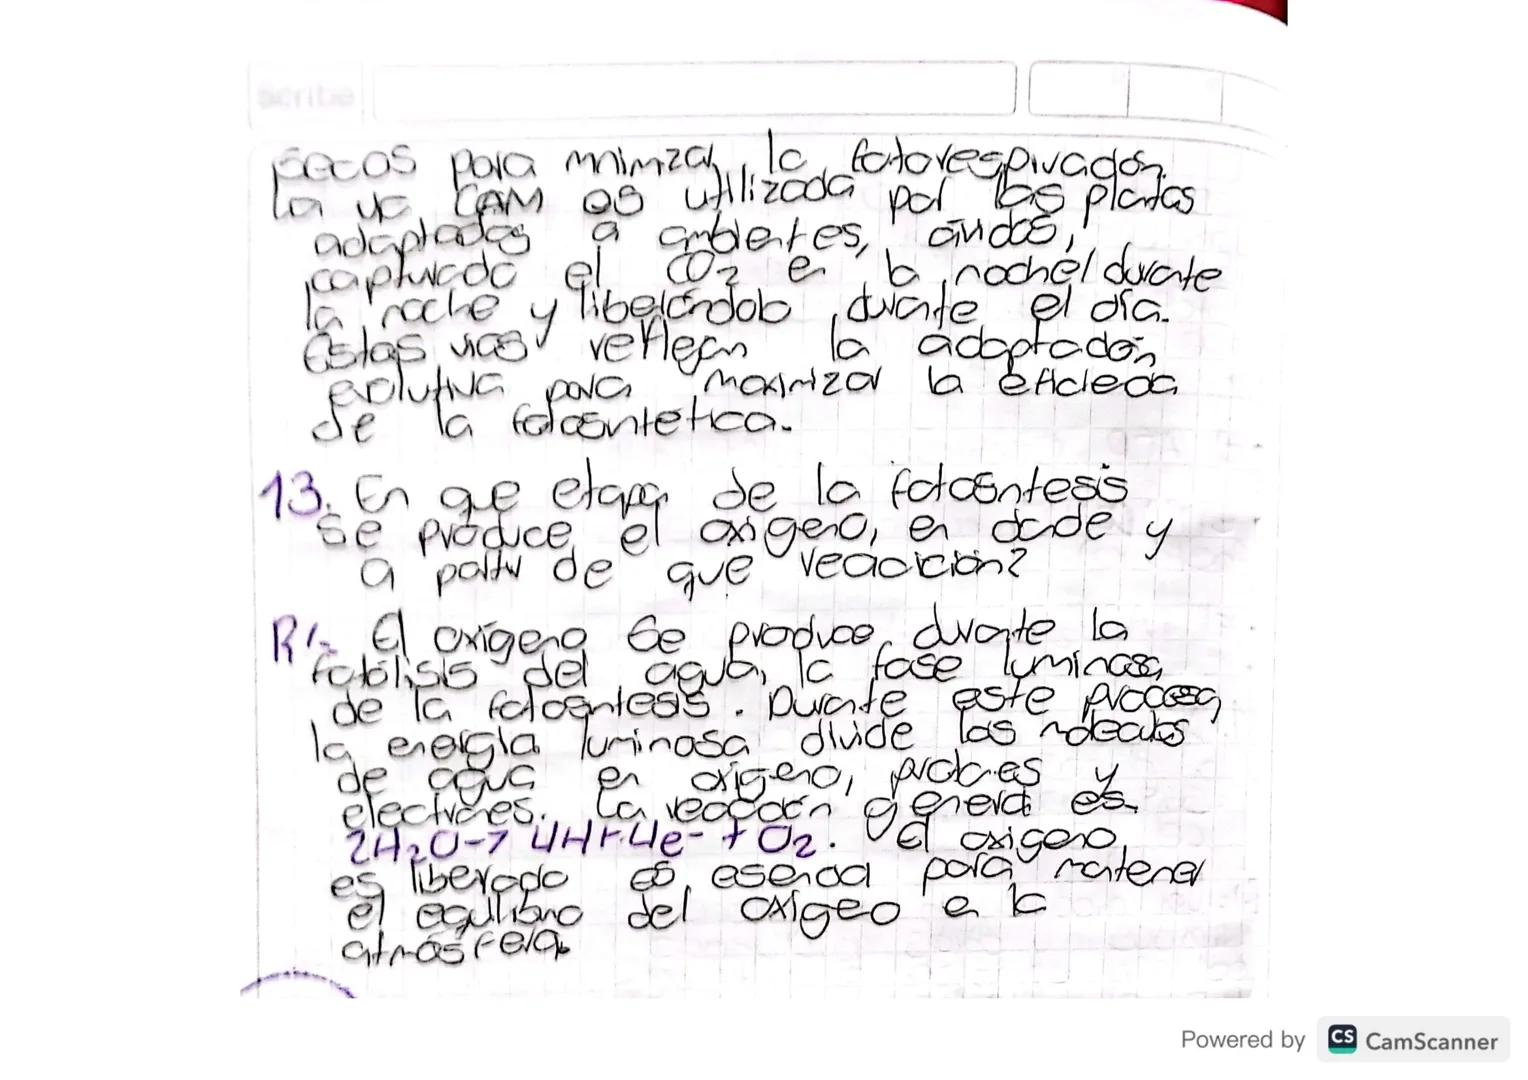 Scribe
secos para mnimzar la fotorespiración.
La va CAM es utilizada por las platas
adaptadas a ambientes, áridos,
capturado el CO2 en la noche/durate
la noche y liberándolo durate el día.
Estas vias reflejan la adaptación
evolutiva para maximizar la eficieca
de la fotosintetica.
13. En que etapa de la fotosíntesis
se produce el oxigeno, en dode y
a partir de que reacición?
R/= El oxígeno se produce durate la
fotólisis del agua, la fase luminosa,
de la fotosíntesis. Durate este proceso,
la energía luminosa divide las moleculas
de agua en oxigeno, protones y
electrones. La reacción general es
2H2O-> 4H+4e- + O2. El oxigeno
es liberado es esencial para matener
el equilibrio del oxígeo e la
atmósfera.
Powered by CS CamScanner